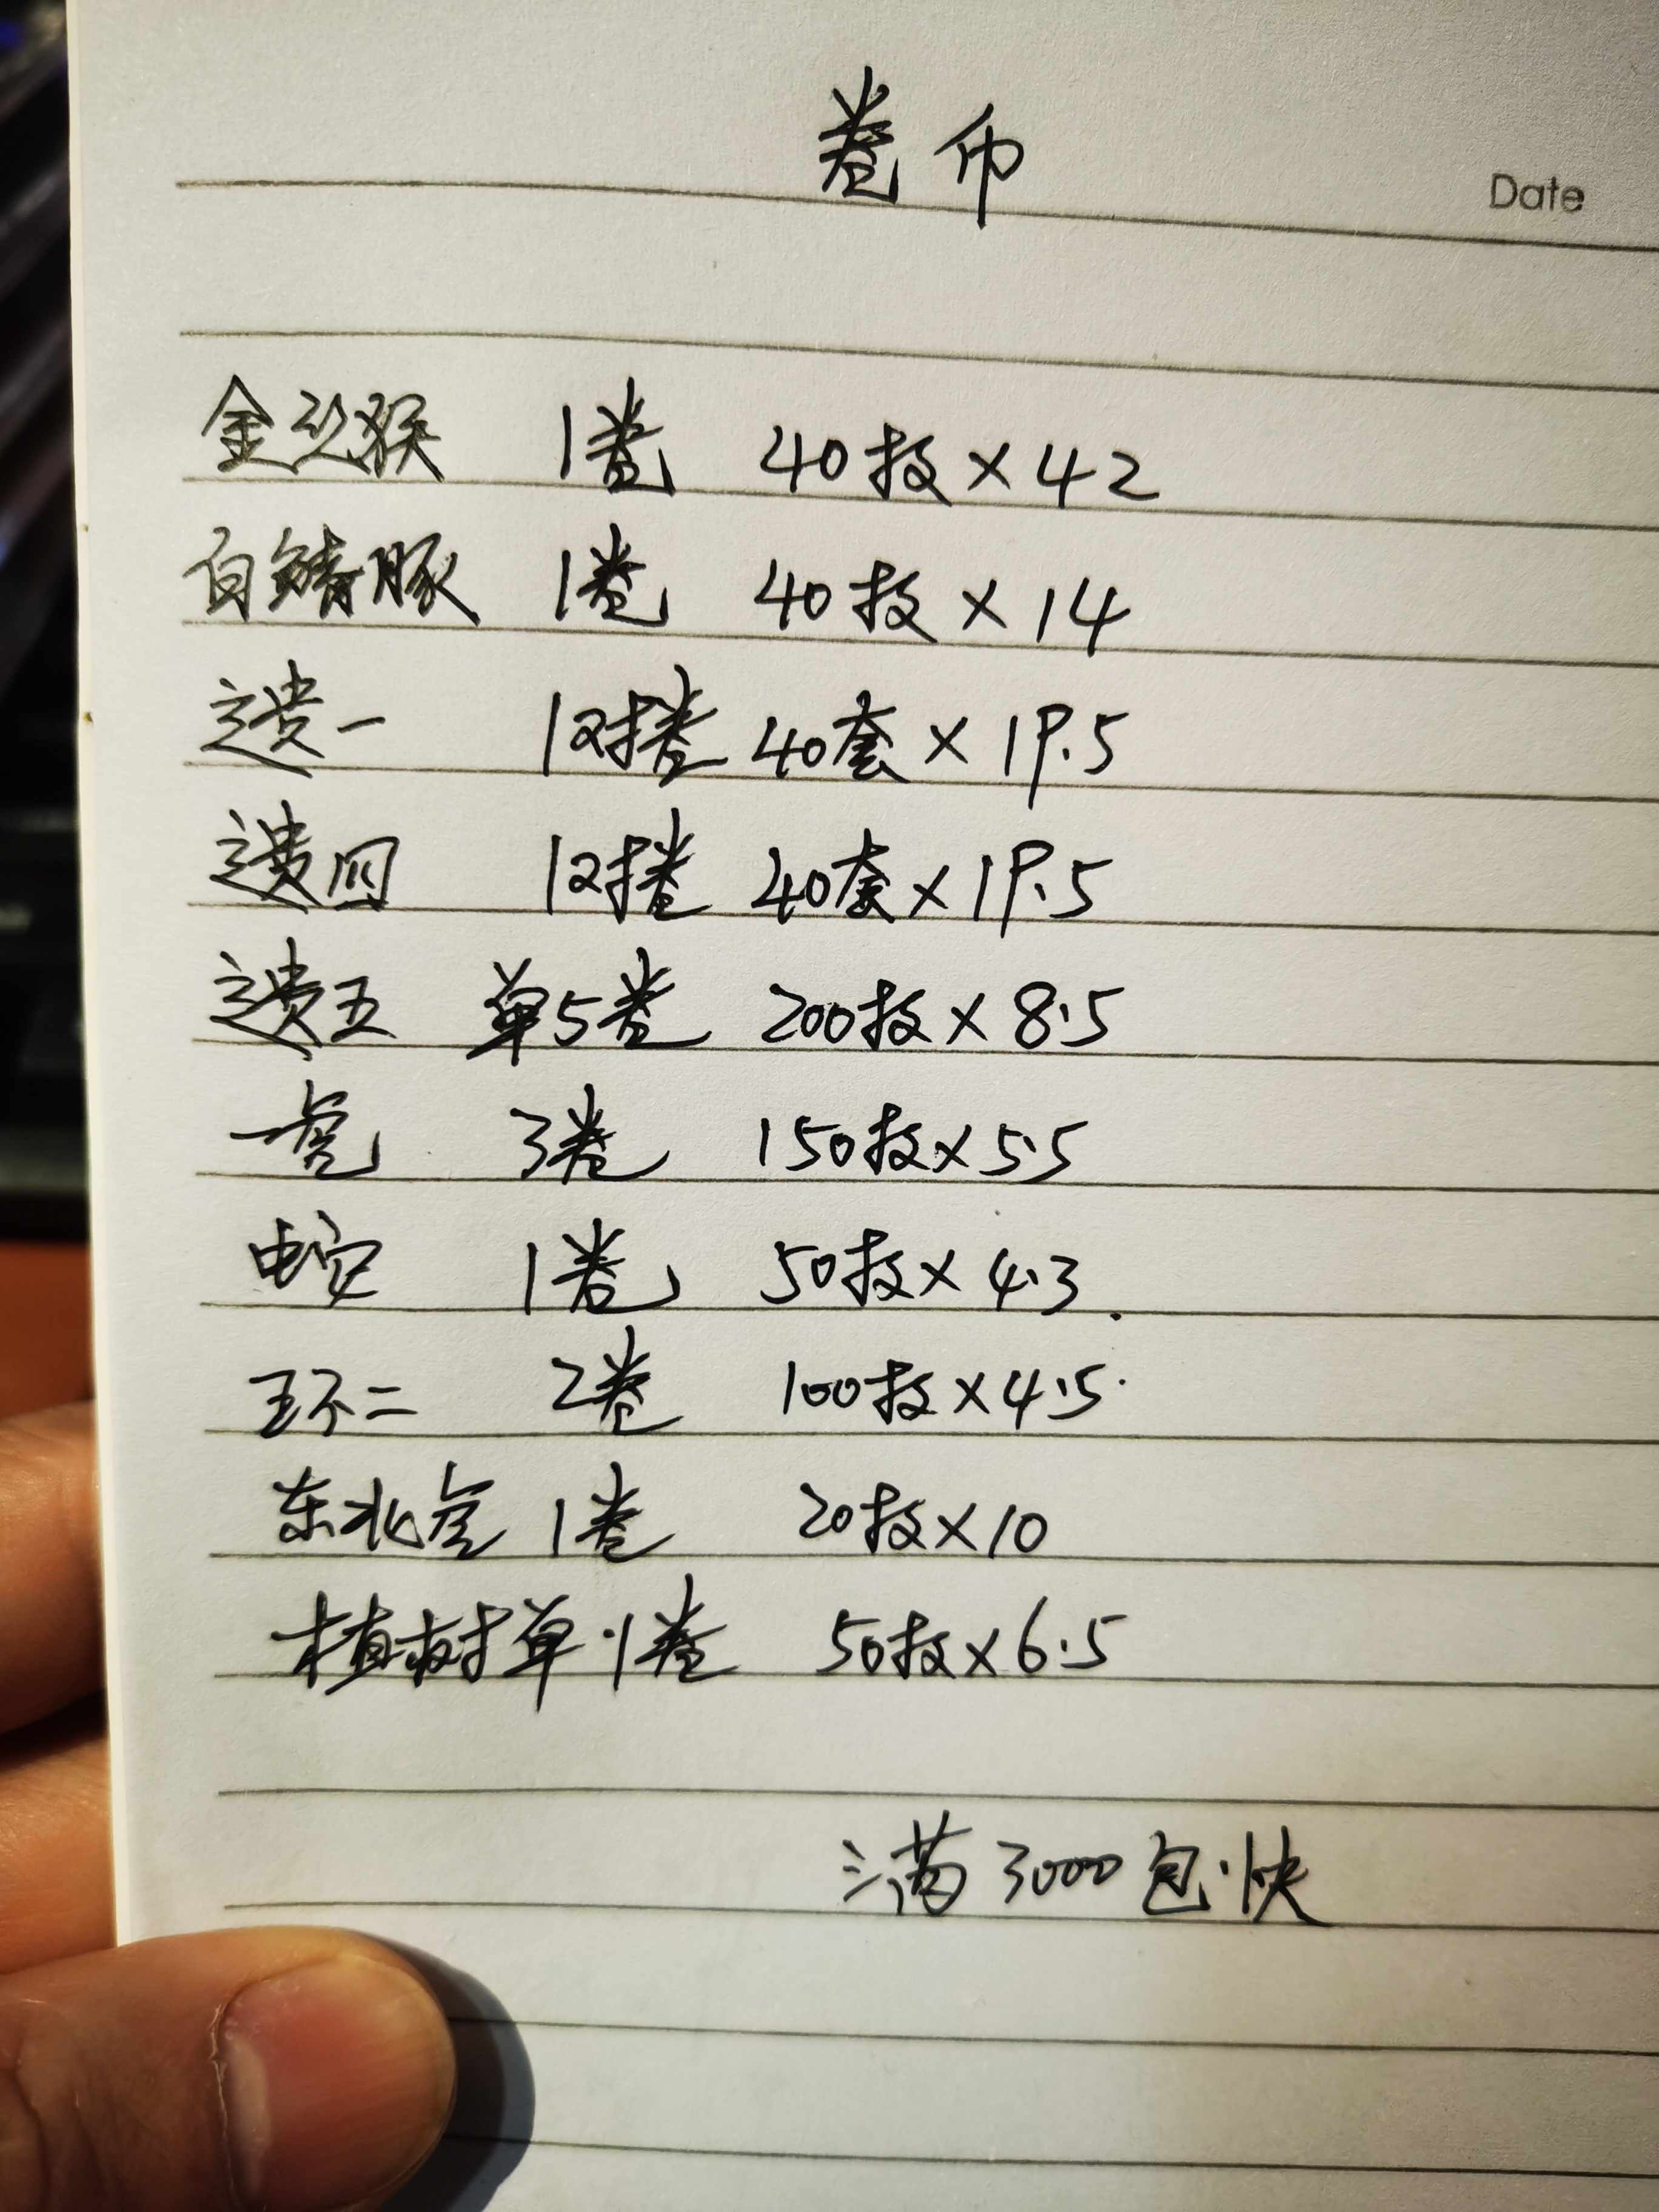 卷币
Date
金丝猴 1卷 40枚×42
白鳍豚 1卷 40枚×14
遗一 1对卷 40套×19.5
遗四 1对卷 40套×19.5
遗五 单5卷 200枚×8.5
一虎 3卷 150枚×5.5
蛇 1卷 50枚×4.3
环二 2卷 100枚×4.5
东北虎 1卷 20枚×10
植树单1卷 50枚×6.5
满3000包快